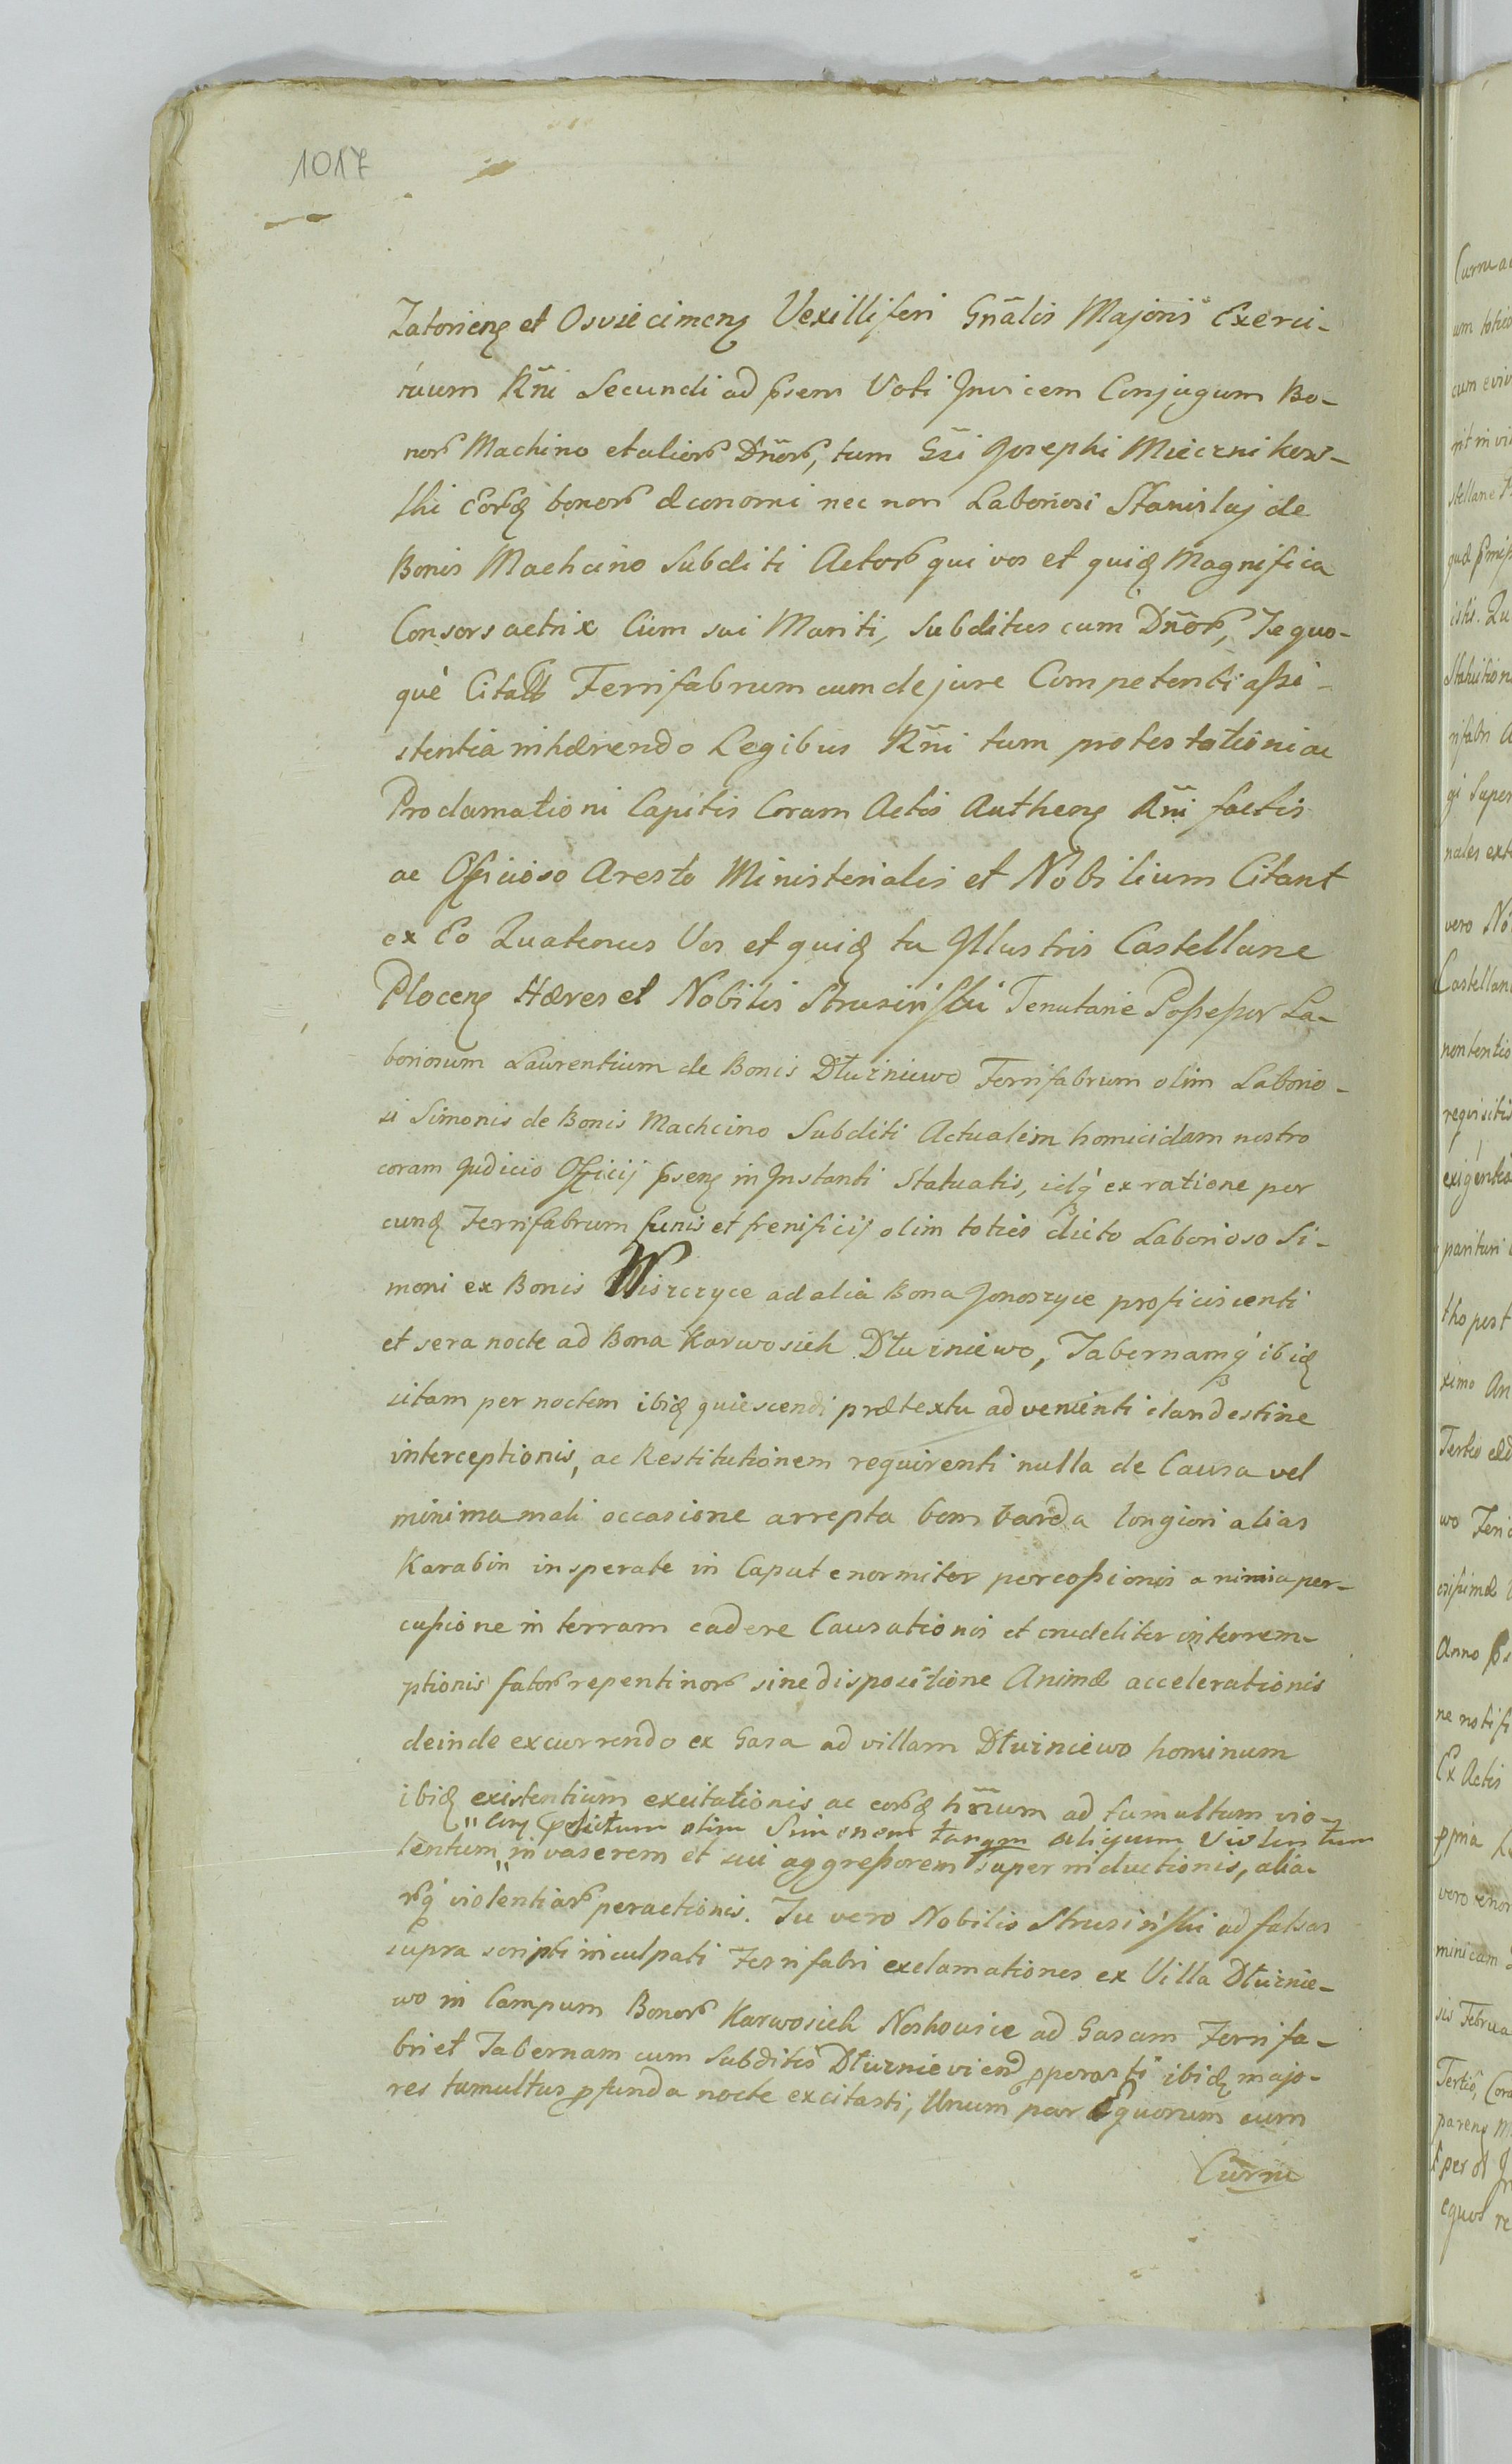 1017
Zatorieng et Osvieciмeng Vexilliferi Gñalis Majoris Exerci-
tuum Rñi Secundi ad psens Voti Invicem Conjugum Bo-
nor Machino et alior Dñor, tum Gsi Josephi Miecznikow-
ski Eorq bonor Oeconomi nec non Laboriosi Stanislaj de
Bonis Machcino Subditi Actor qui vos et quiq Magnifica
Consors actrix Cum sui Mariti, Subditus cum Dñor, Te quo-
què Citatt Ferrifabrum cum de jure Competenti assi-
stentia inhærendo Legibus Rñi tum protestationi ac
Proclamationi Capitis Coram Actis Autheng Rñi factis
ac Officioso Aresto Ministerialis et Nobilium Citant
ex Eo Quatenus Vos et quiq tu Jllustris Castellane
Ploceng Hæres et Nobilis Strusinski Tenutarie Possessor La-
boriosum Laurentium de Bonis Dłuzniewo Ferrifabrum olim Laborio-
si Simonis de Bonis Machcino Subditi Actualem homicidam nostro
coram Judicio Officij pseng in Instanti Statuatis, idq ex ratione per
eunq Ferrifabrum funis et frenificij olim toties dicto Laborioso Si-
moni ex Bonis Wiszczyce ad alia Bona Jonoszyce proficiscenti
et sera nocte ad Bona Karwosieh Dłuzniewo, Tabernamq ibiq
sitam per noctem ibiq quiescendi prætextu advenienti clandestine
interceptionis, ac Restitutionem requirenti nulla de Causa vel
minima mali occasione arrepta bombarda longiori alias
Karabin insperate in Caput enormiter percossionis a nimia per-
cussione in terram cadere Causationis et crudeliter interrem-
ptionis fator repentinor sine dispositione Animæ accelerationis
deinde excurrendo ex Gasa ad villam Dłuzniewo hominum
ibiq existentium excitationis ac eorq hñium ad tumultum vio-
" olim Simonem tanqm aliquem Violentum
lentum " invasorem et sui aggressorem super inductionis, alia-
rq violentiar peractionis. Tu vero Nobilis Strusinski ad falsas
supra scripti inculpati Ferrifabri exclamationes ex Villa Dłuznie-
wo in Campum Bonor Karwosieh Noskowice ad Gasam Ferrifa-
bri et Tabernam cum Subditis Dłuznieviend pperasti ibiq majo-
res tumultus pfunda nocte excitasti, Unum par Equorum cum
Curru